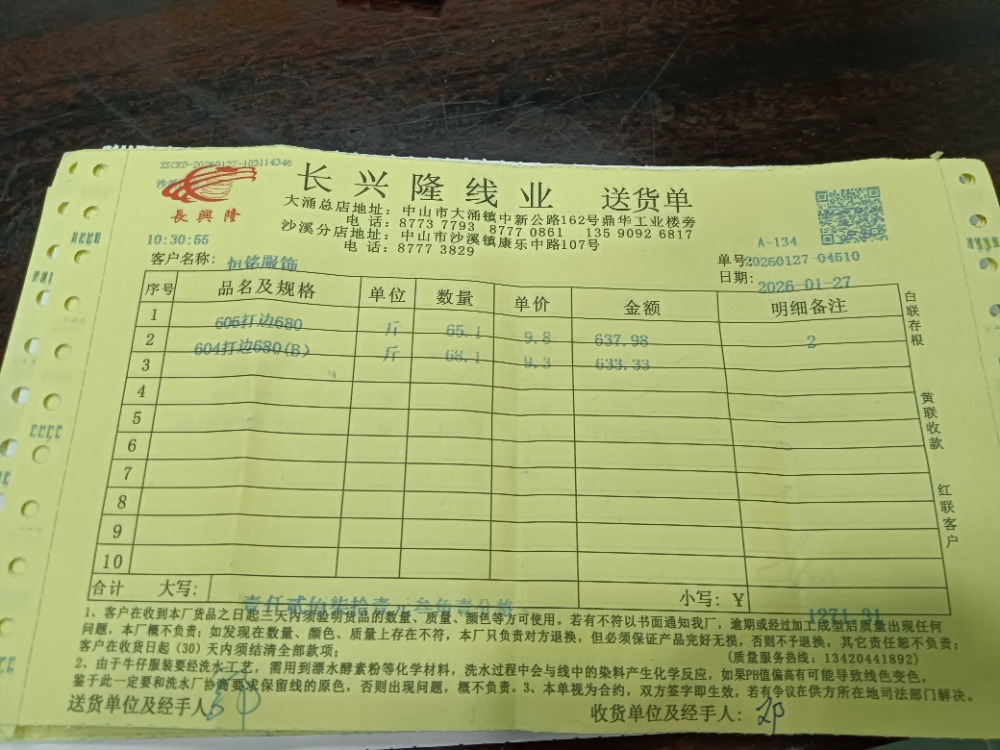 XSCKD-20260127-103114346
長興隆
长兴隆线业 送货单
大涌总店地址：中山市大涌镇中新公路162号鼎华工业楼旁
电话：8773 7793 8777 0861 135 9092 6817
沙溪分店地址：中山市沙溪镇康乐中路107号
电话：8777 3829
10:30:55
A-134
客户名称：恒铭服饰
单号20260127-04510
日期：2026-01-27
序号 品名及规格 单位 数量 单价 金额 明细备注
1 606打边680 斤 65.1 9.8 637.98 2
2 604打边680(B) 斤 68.1 9.3 633.33
3
4
5
6
7
8
9
10
合计 大写：壹仟贰佰柒拾壹元叁角壹分 小写：￥ 1271.31
白联存根
黄联收款
红联客户
1、客户在收到本厂货品之日起三天内须验明货品的数量、质量、颜色等方可使用。若有不符以书面通知我厂，逾期或经过加工成型后质量出现任何
问题，本厂概不负责；如发现在数量、颜色、质量上存在不符，本厂只负责对方退换，但必须保证产品完好无损，否则不予退换，其它责任恕不负责；
客户在收货日起（30）天内须结清全部款项； （质量服务热线：13420441892）
2、由于牛仔服装要经洗水工艺，需用到漂水酵素粉等化学材料，洗水过程中会与线中的染料产生化学反应，如果PH值偏高有可能导致线色变色，
鉴于此一定要和洗水厂协商要求保留线的原色，否则出现问题，概不负责。3、本单视为合约，双方签字即生效，若有争议在供方所在地司法部门解决。
送货单位及经手人
收货单位及经手人：